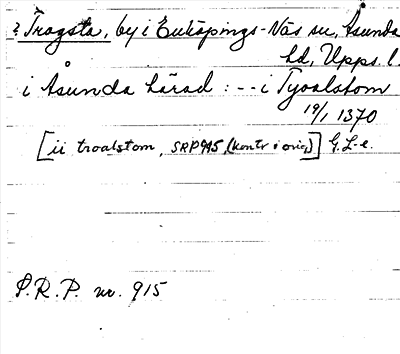 ? Trogsta, by i Enköpings-Näs sn, Åsunda
hd, Upps. l.
i Åsunda härad : -- i Tyoalstom
19/1 1370
[ii troalstom, SRP 915, (kontr i orig)] G. L-e.
S.R.P. nr. 915